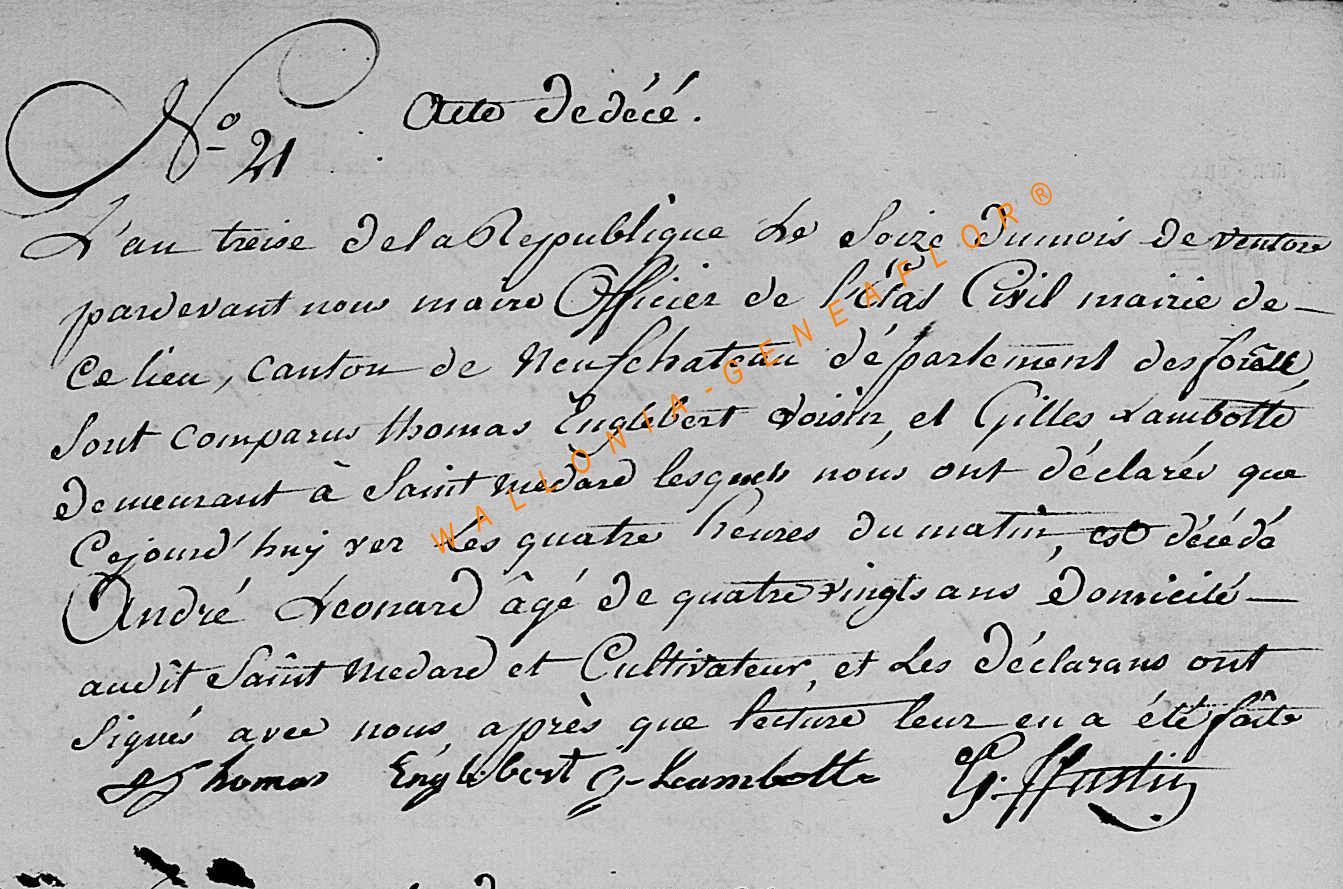 Acte de décé.
No 21
L'an treise de la République Le Seize du mois de ventose
pardevant nous maire Officier de l'état Civil mairie de
Ce lieu, canton de Neufchateau département des forêts
Sont comparus thomas Englebert voisin, et Gilles Lambotte
demeurant à Saint medard lesquels nous ont déclarés que
Cejourd'huy ver Les quatre heures du matin, est décédé
André Leonard âgé de quatre vingts ans Domicilié
audit Saint Medard et Cultivateur, et Les déclarans ont
signés avec nous après que lecture leur en a été faite
Thomas Englebert G Lambotte G.
WALLONIA-GENEAFLOR®